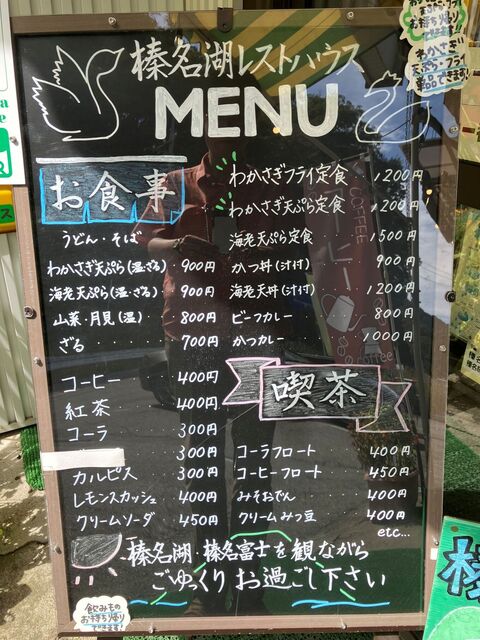 榛名湖レストハウス
MENU
お持ち帰り
できます!
わかさぎ
天ぷら・フライ
単品できます!
お食事
うどん・そば
わかさぎ天ぷら(温・ざる) 900円
海老天ぷら(温・ざる) 900円
山菜・月見(温) 800円
ざる 700円
わかさぎフライ定食 1200円
わかさぎ天ぷら定食 1200円
海老天ぷら定食 1500円
かつ丼(汁付) 900円
海老天丼(汁付) 1200円
ビーフカレー 800円
かつカレー 1000円
喫茶
コーヒー 400円
紅茶 400円
コーラ 300円
300円
カルピス 300円
レモンスカッシュ 400円
クリームソーダ 450円
コーラフロート 400円
コーヒーフロート 450円
みそおでん 400円
クリームみつ豆 400円
etc...
榛名湖・榛名富士を観ながら
ごゆっくりお過ごし下さい
飲みもの
お持ち帰り
できます!
COFFEE
coffee
榛